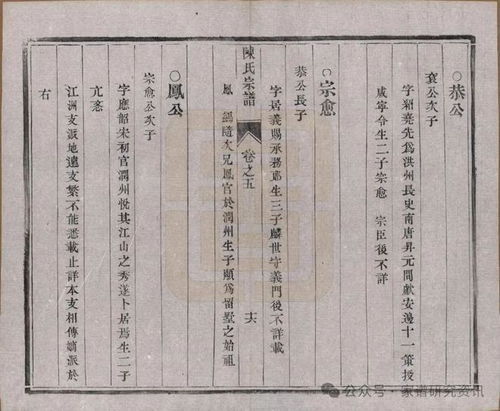 ○恭公
袞公次子
字穎堯先為洪州長史南唐昇元間獻安邊十一策授
咸寧令生二子宗愈 宗臣後不詳
○宗愈
恭公長子
字居義賜承務郎生三子麟世守義門後不詳載
鳳 鎰隨次兄鳳官於潤州生子頤為留墅之始祖
陳氏宗譜
卷之五
○鳳公
宗愈公次子
字應韶宋初官潤州悅其江山之秀遂卜居焉生二子
亢 㤅
江洲支派地遠支繁不能悉載止詳本支相傳嫡派於
右
公众号·家谱研究资讯